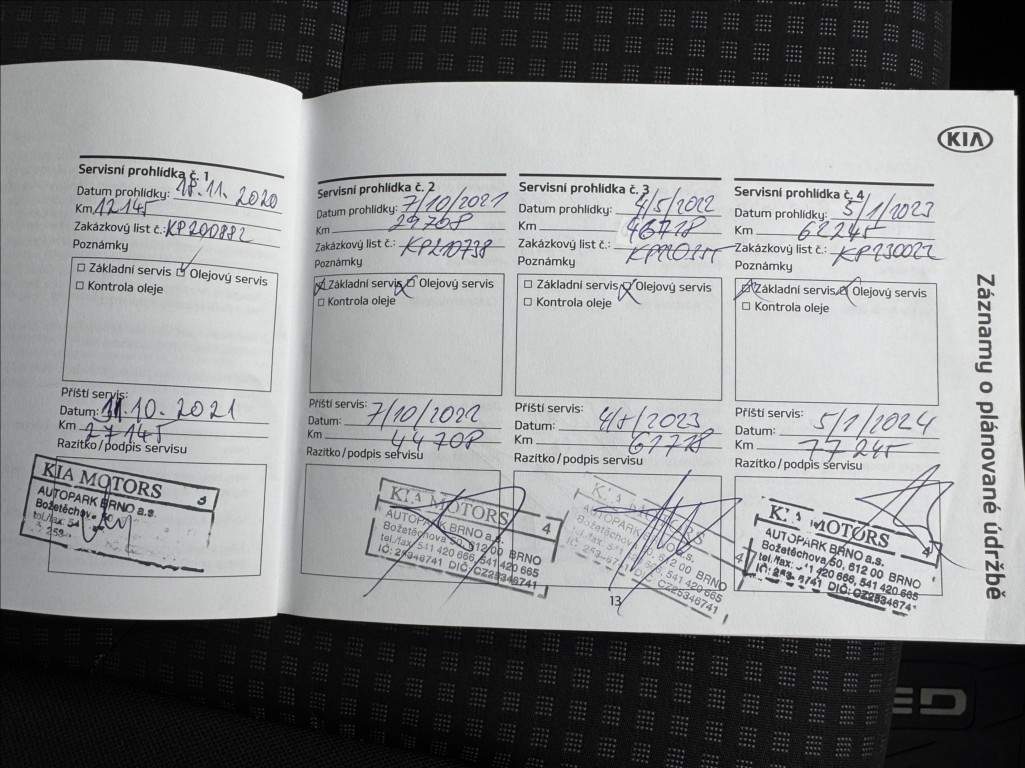 KIA
Servisní prohlídka č. 1
Datum prohlídky: 18.11. 2020
Km 12145
Zakázkový list č.: KP200882
Poznámky
Základní servis Olejový servis
Kontrola oleje
Příští servis:
Datum: 11.10. 2021
Km 27145
Razítko/podpis servisu
KIA MOTORS
3
AUTOPARK BRNO a.s.
tel./fax: 54
Servisní prohlídka č. 2
Datum prohlídky: 7/10/2021
Km 29708
Zakázkový list č.: KP210738
Poznámky
Základní servis Olejový servis
Kontrola oleje
Příští servis:
Datum: 7/10/2022
Km 44708
Razítko/podpis servisu
KIA MOTORS
4
AUTOPARK BRNO a.s.
Božetěchova 50, 612 00 BRNO
tel./fax: 541 420 666, 541 420 665
IČ: 25346741 DIČ: CZ25346741
Servisní prohlídka č. 3
Datum prohlídky: 4/5/2022
Km 46778
Zakázkový list č.:
Poznámky
Základní servis Olejový servis
Kontrola oleje
Příští servis:
Datum: 4/5/2023
Km 61778
Razítko/podpis servisu
AUTOPARK BRNO a.s.
4
BRNO
CZ25346741
Servisní prohlídka č. 4
Datum prohlídky: 5/1/2023
Km 62245
Zakázkový list č.: KP230022
Poznámky
Základní servis Olejový servis
Kontrola oleje
Příští servis:
Datum: 5/1/2024
Km 77245
Razítko/podpis servisu
KIA MOTORS
4
AUTOPARK BRNO a.s.
Božetěchova 50, 612 00 BRNO
tel./fax: 541 420 666, 541 420 665
DIČ: CZ2534674
13
Záznamy o plánované údržbě